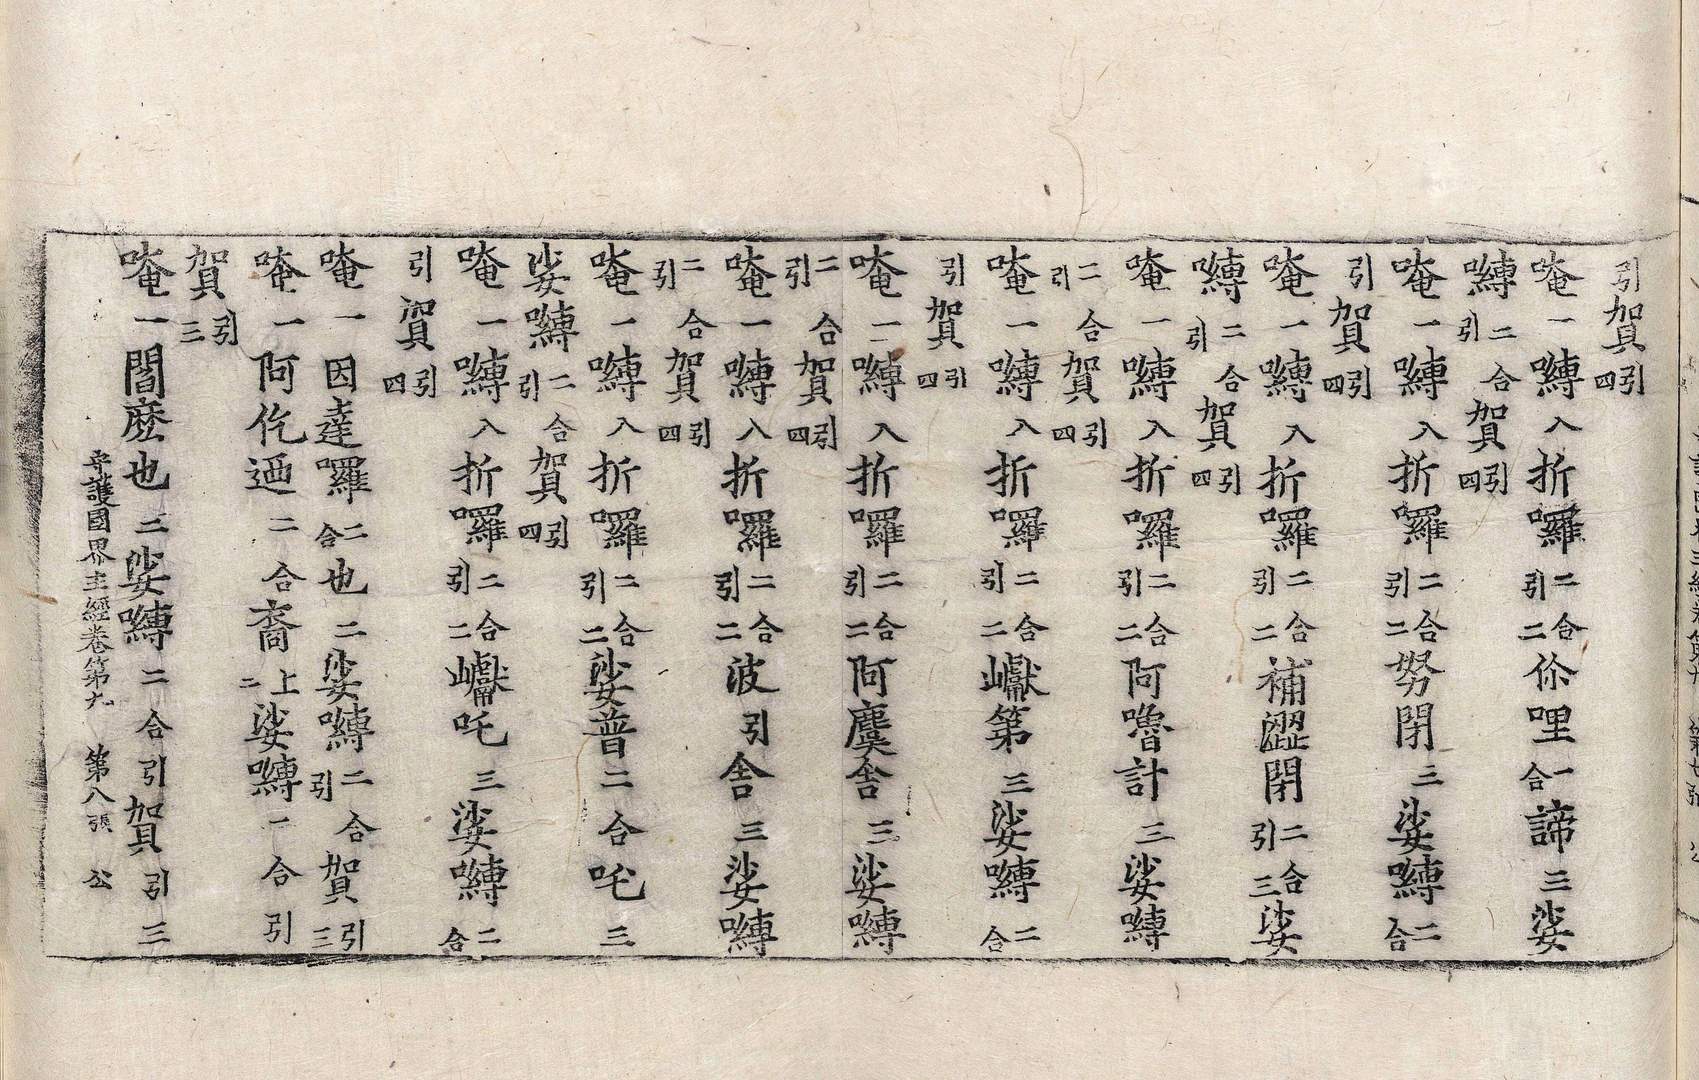 引賀引四
唵一嚩入折囉二合引二你哩一合諦三娑
嚩二合引賀引四
唵一嚩入折囉二合引二努閉三娑嚩二合
引賀引四
唵一嚩入折囉二合引二補澀閉二合引三娑
嚩二合引賀引四
唵一嚩入折囉二合引二阿嚕計三娑嚩
二合引賀引四
唵一嚩入折囉二合引二巘第三娑嚩二合
引賀引四
唵一嚩入折囉二合引二阿麌舍三娑嚩
二合引賀引四
唵一嚩入折囉二合引二波引舍三娑嚩
二合引賀引四
唵一嚩入折囉二合引二娑普二合吒三
娑嚩二合引賀引四
唵一嚩入折囉二合引二巘吒三娑嚩二合
引賀引四
唵一因達囉二合也二娑嚩二合引賀引三
唵一阿仡迺二合裔上二娑嚩一合引
賀引三
唵一閻麽也二娑嚩二合引賀引三
守護國界主經卷第九 第八張 公